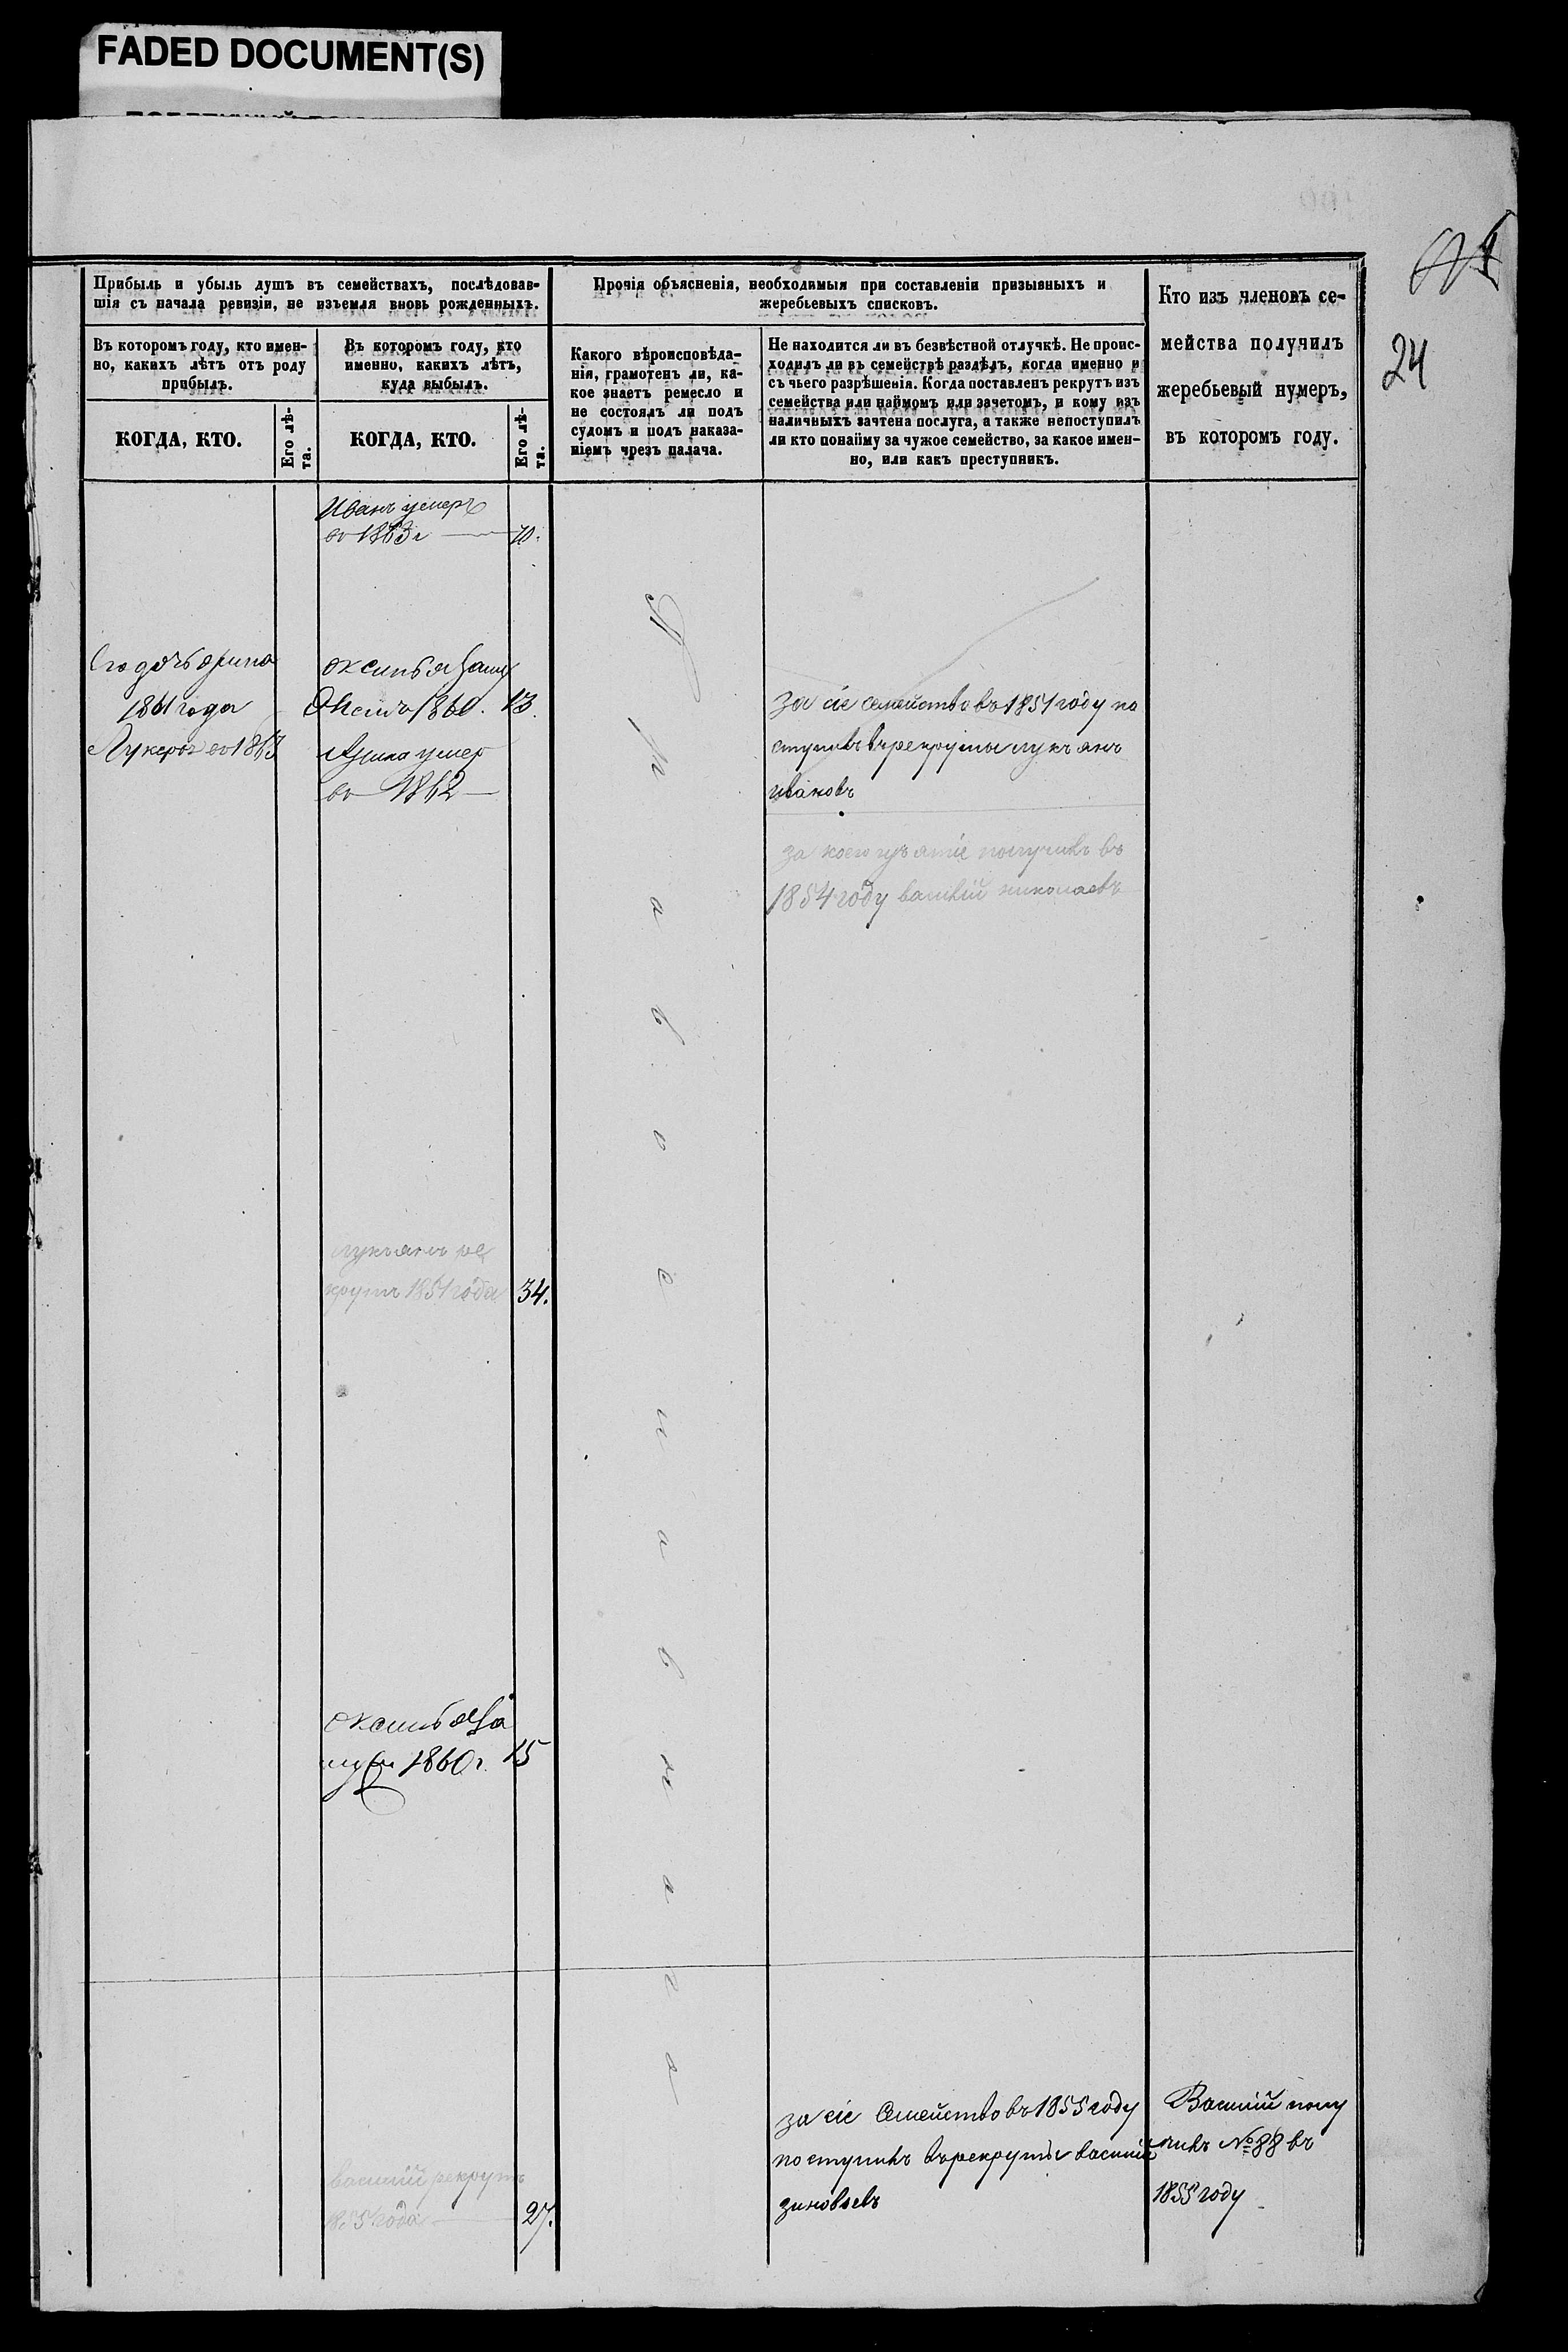 FADED DOCUMENT(S)
24
Прибыль и убыль душъ въ семействахъ, послѣдовав-
шія съ начала ревизіи, не изъемля вновь рожденныхъ.
Прочія объясненія, необходимыя при составленіи призывныхъ и
жеребьевыхъ списковъ.
Кто изъ членовъ се-
мейства получилъ
жеребьевый нумеръ,
въ которомъ году.
Въ которомъ году, кто имен-
но, какихъ лѣтъ отъ роду
прибылъ.
Въ которомъ году, кто
именно, какихъ лѣтъ,
куда выбылъ.
Какого вѣроисповѣда-
нія, грамотенъ ли, ка-
кое знаетъ ремесло и
не состоялъ ли подъ
судомъ и подъ наказа-
ніемъ чрезъ палача.
Не находится ли въ безвѣстной отлучкѣ. Не проис-
ходилъ ли въ семействѣ раздѣлъ, когда именно и
съ чьего разрѣшенія. Когда поставленъ рекрутъ изъ
семейства или наймомъ или зачетомъ, и кому изъ
наличныхъ зачтена послуга, а также непоступилъ
ли кто понайму за чужое семейство, за какое имен-
но, или какъ преступникъ.
КОГДА, КТО.
Его лѣ-
та.
КОГДА, КТО.
Его лѣ-
та.
Иванъ умеръ
во 1863 г 70.
Его дочь орина
1861 года
Лукерья во 1863
оксинья замуж
1860. 13.
умер
во 1862
Православнаго
за сіе семейство въ 1851 году по
ступилъ въ рекруты лукъянъ
ивановъ
за кое получилъ въ
1854 году василій николаевъ
лукъянъ ре
крутъ 1851 года 34.
оксинья за
муж 1860 г. 15
василій рекрутъ
1855 года 27.
за сіе Семейство въ 1855 году
поступилъ въ рекруты василій
зиновьевъ
Василій полу
чилъ № 88 въ
1855 году